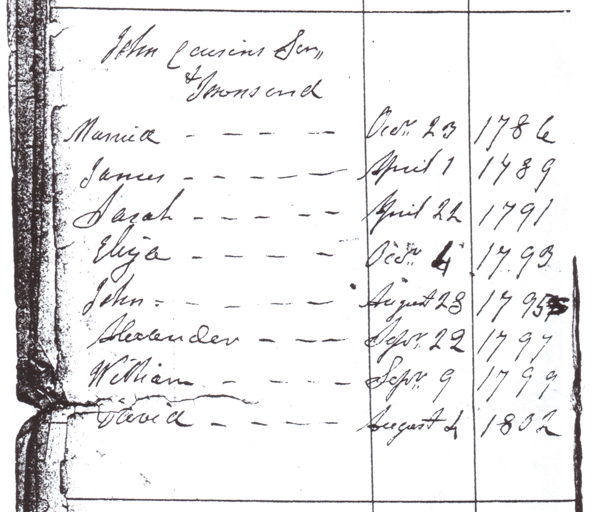 John Cousins Senr,,
& Townsend
Married - - - - - Octr. 23 1786
James - - - - - - April 1 1789
Sarah - - - - - April 22 1791
Eliza - - - - Octr. 4 1793
John - - - - August 28 1795
Alexander - - - Sepr. 22 1797
William - - - - Sepr. 9 1799
David - - - - August 4 1802